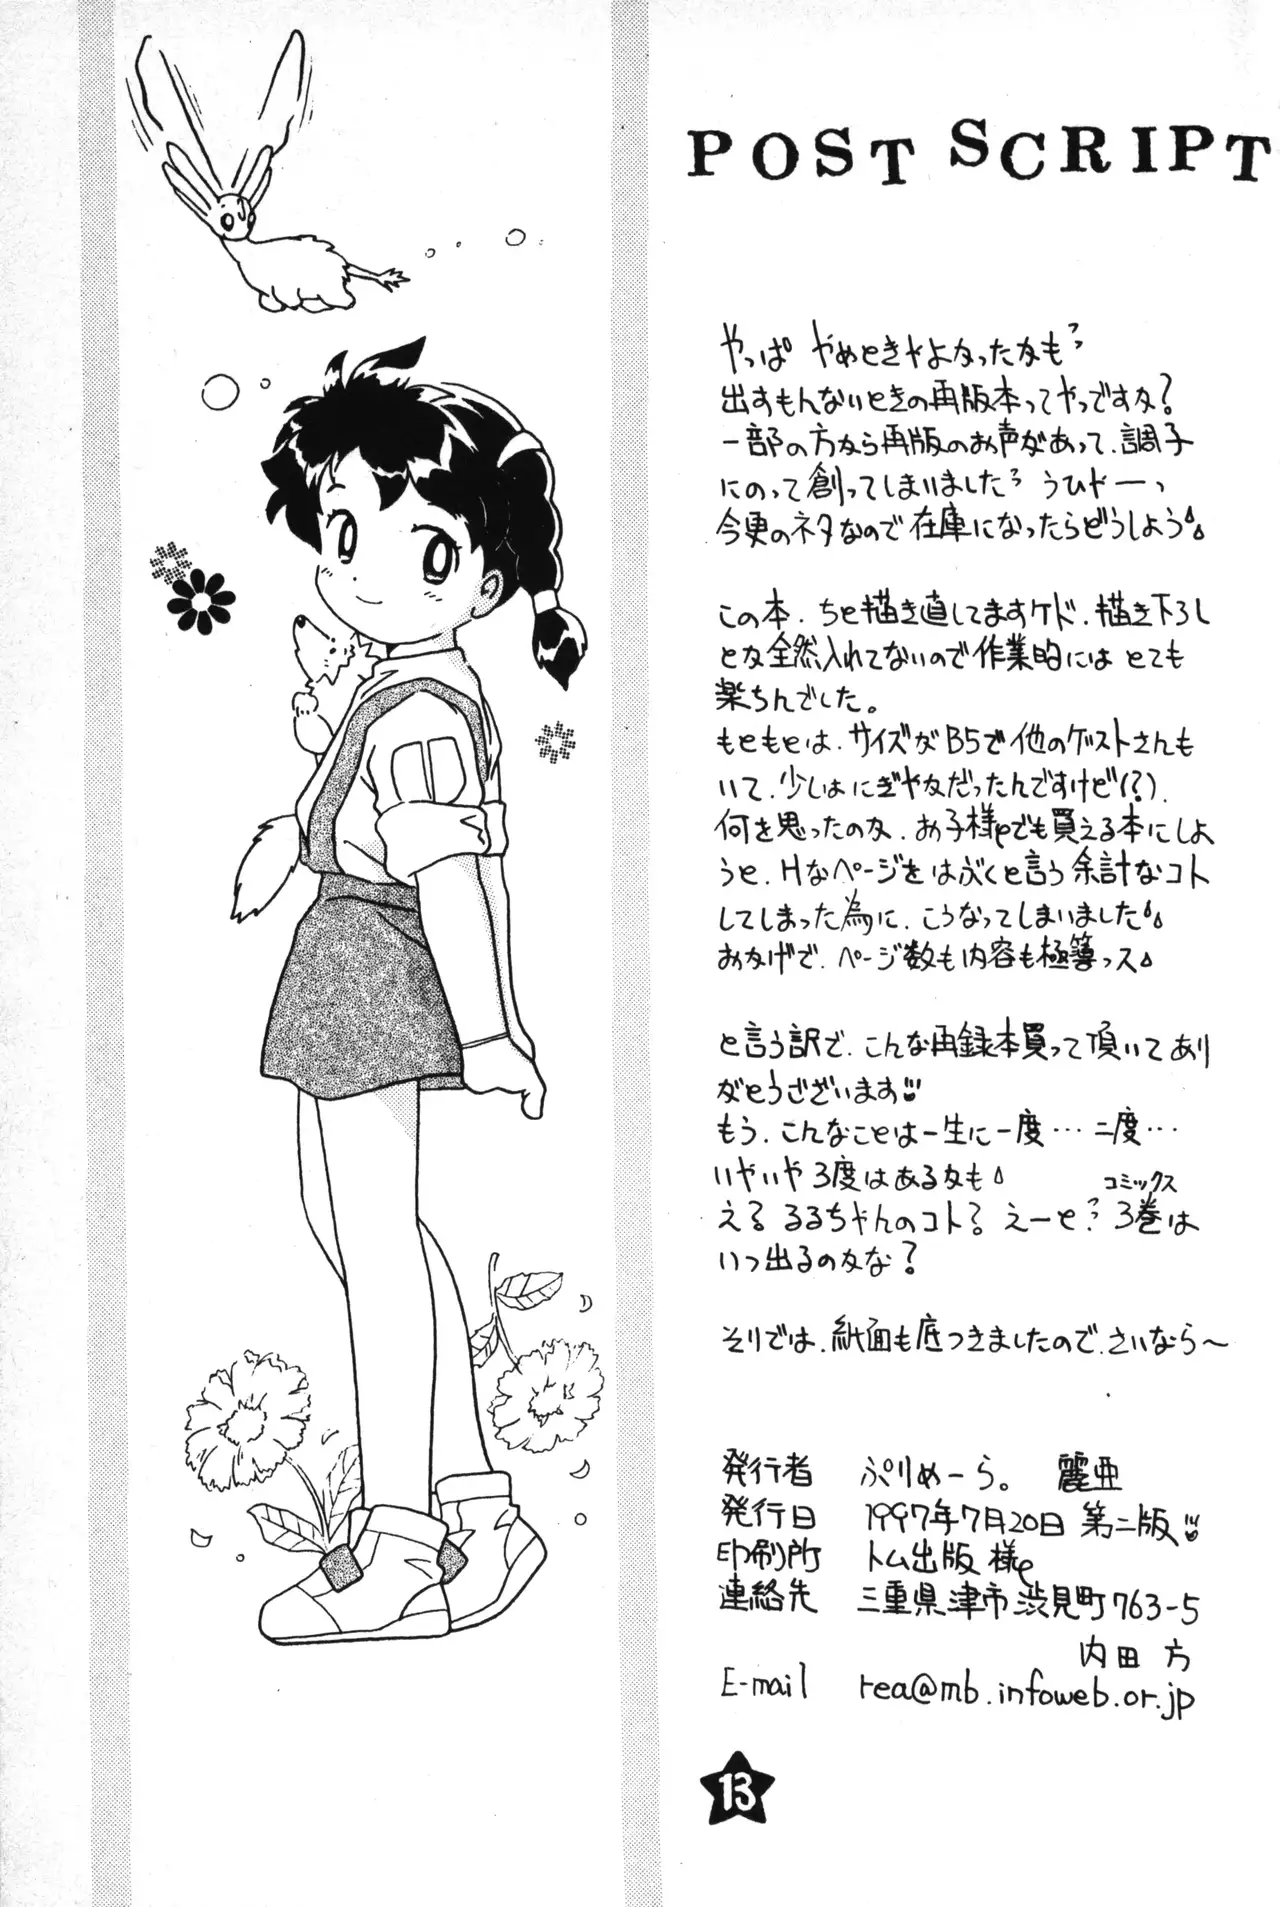 POST SCRIPT
やっぱ やめときゃよかったかも?
出すもんないときの再版本ってやつですか?
一部の方から再版のお声があって、調子
にのって創ってしまいました? うひドーっ
今更のネタなので在庫になったらどうしよう
この本、ちと描き直してますケド、描き下ろし
とか全然入れてないので作業的にはとても
楽ちんでした。
もともとは、サイズがB5で他のゲストさんも
いて、少しはにぎやかだったんですけど(?)、
何を思ったのか、お子様でも買える本にしよ
うと、Hなページをはぶくと言う余計なコト
してしまった為に、こうなってしまいました
おかげで、ページ数も内容も極薄っス
と言う訳で、こんな再録本買って頂いてあり
がとうございます
もう、こんなことは一生に一度…二度…
いやいや3度はあるかも
える るるちゃんのコト? えーと? 3巻は
コミックス
いつ出るのかな?
そりでは、紙面も底つきましたので、さいなら〜
発行者 ぷりめーら。 麗亜
発行日 1997年7月20日 第二版
印刷所 トム出版 様
連絡先 三重県津市渋見町763-5
内田 方
E-mail rea@mb.infoweb.or.jp
13